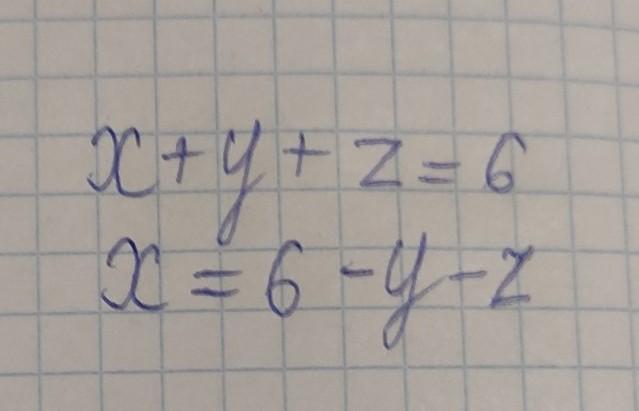 x+y+z=6
x=6-y-z